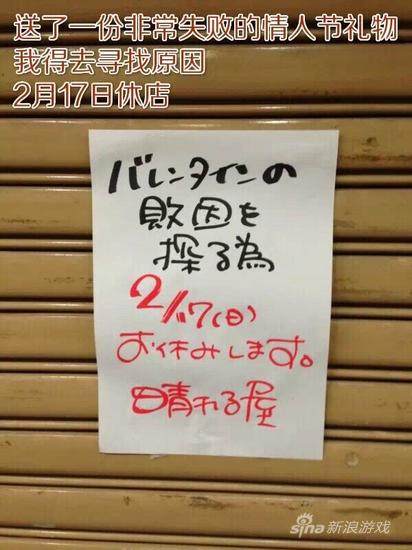 送了一份非常失败的情人节礼物
我得去寻找原因
2月17日休店
バレンタインの
敗因を
探る為
2/17(日)
お休みします。
晴れる屋
sina新浪游戏